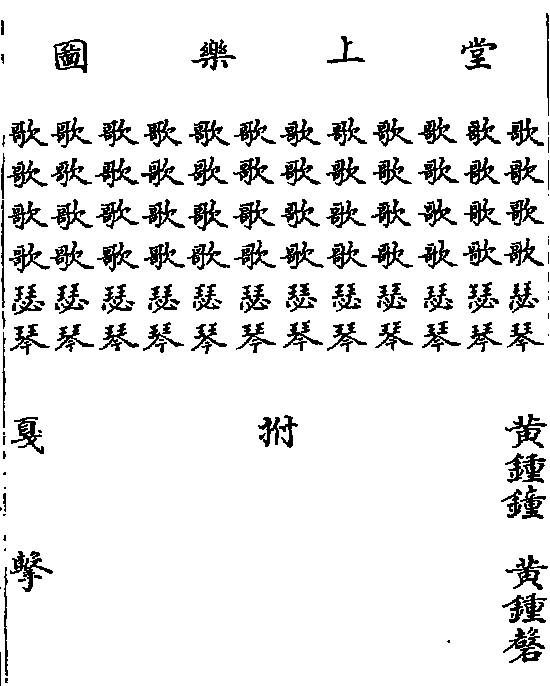 堂上樂圖
歌歌歌歌歌歌歌歌歌歌歌歌
歌歌歌歌歌歌歌歌歌歌歌歌
歌歌歌歌歌歌歌歌歌歌歌歌
歌歌歌歌歌歌歌歌歌歌歌歌
瑟瑟瑟瑟瑟瑟瑟瑟瑟瑟瑟瑟
琴琴琴琴琴琴琴琴琴琴琴琴
黄鍾鐘
黄鍾磬
拊
戛
擊